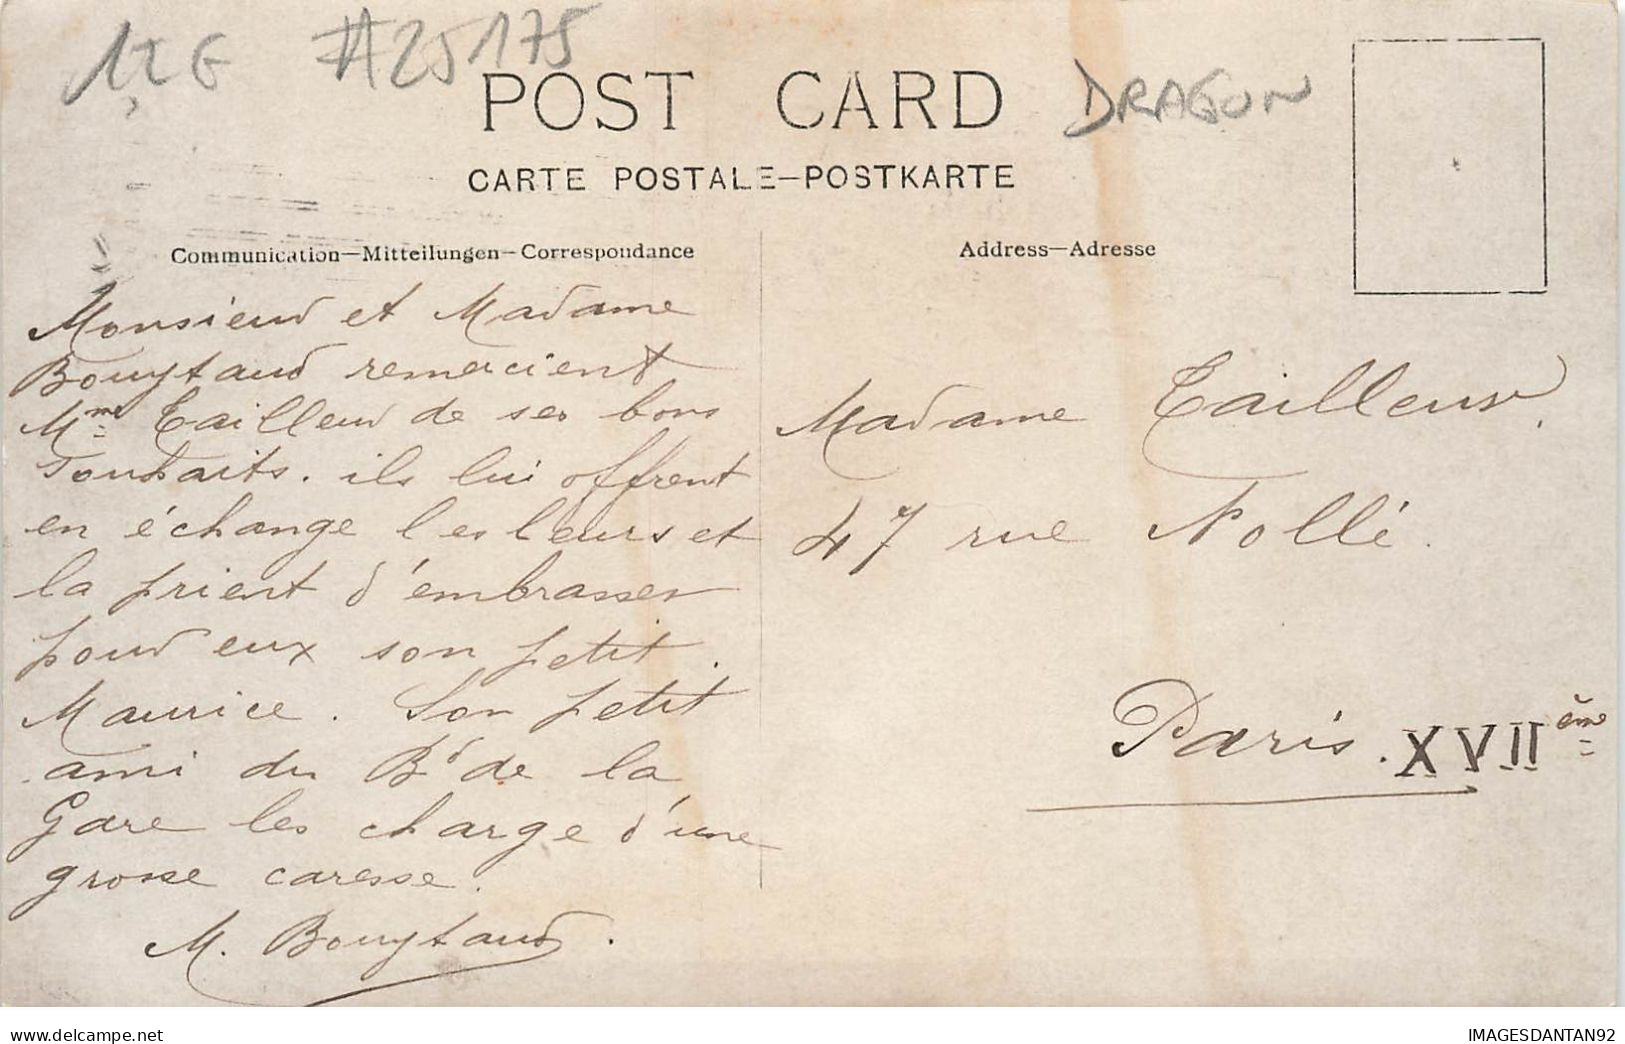 #25175
POST CARD
DRAGON
CARTE POSTALE—POSTKARTE
Communication—Mitteilungen—Correspondance
Address—Adresse
Monsieur et Madame
Bouytaud remercient
Mme Tailleur de ses bons
souhaits. ils lui offrent
en échange les leurs et
la prient d'embrasser
pour eux son petit
Maurice. Son petit
ami du Bd de la
Gare les charge d'une
grosse caresse.
M. Bouytaud.
Madame Tailleur.
47 rue Nollé.
Paris. XVIIème
delcampe.net
IMAGESDANTAN92